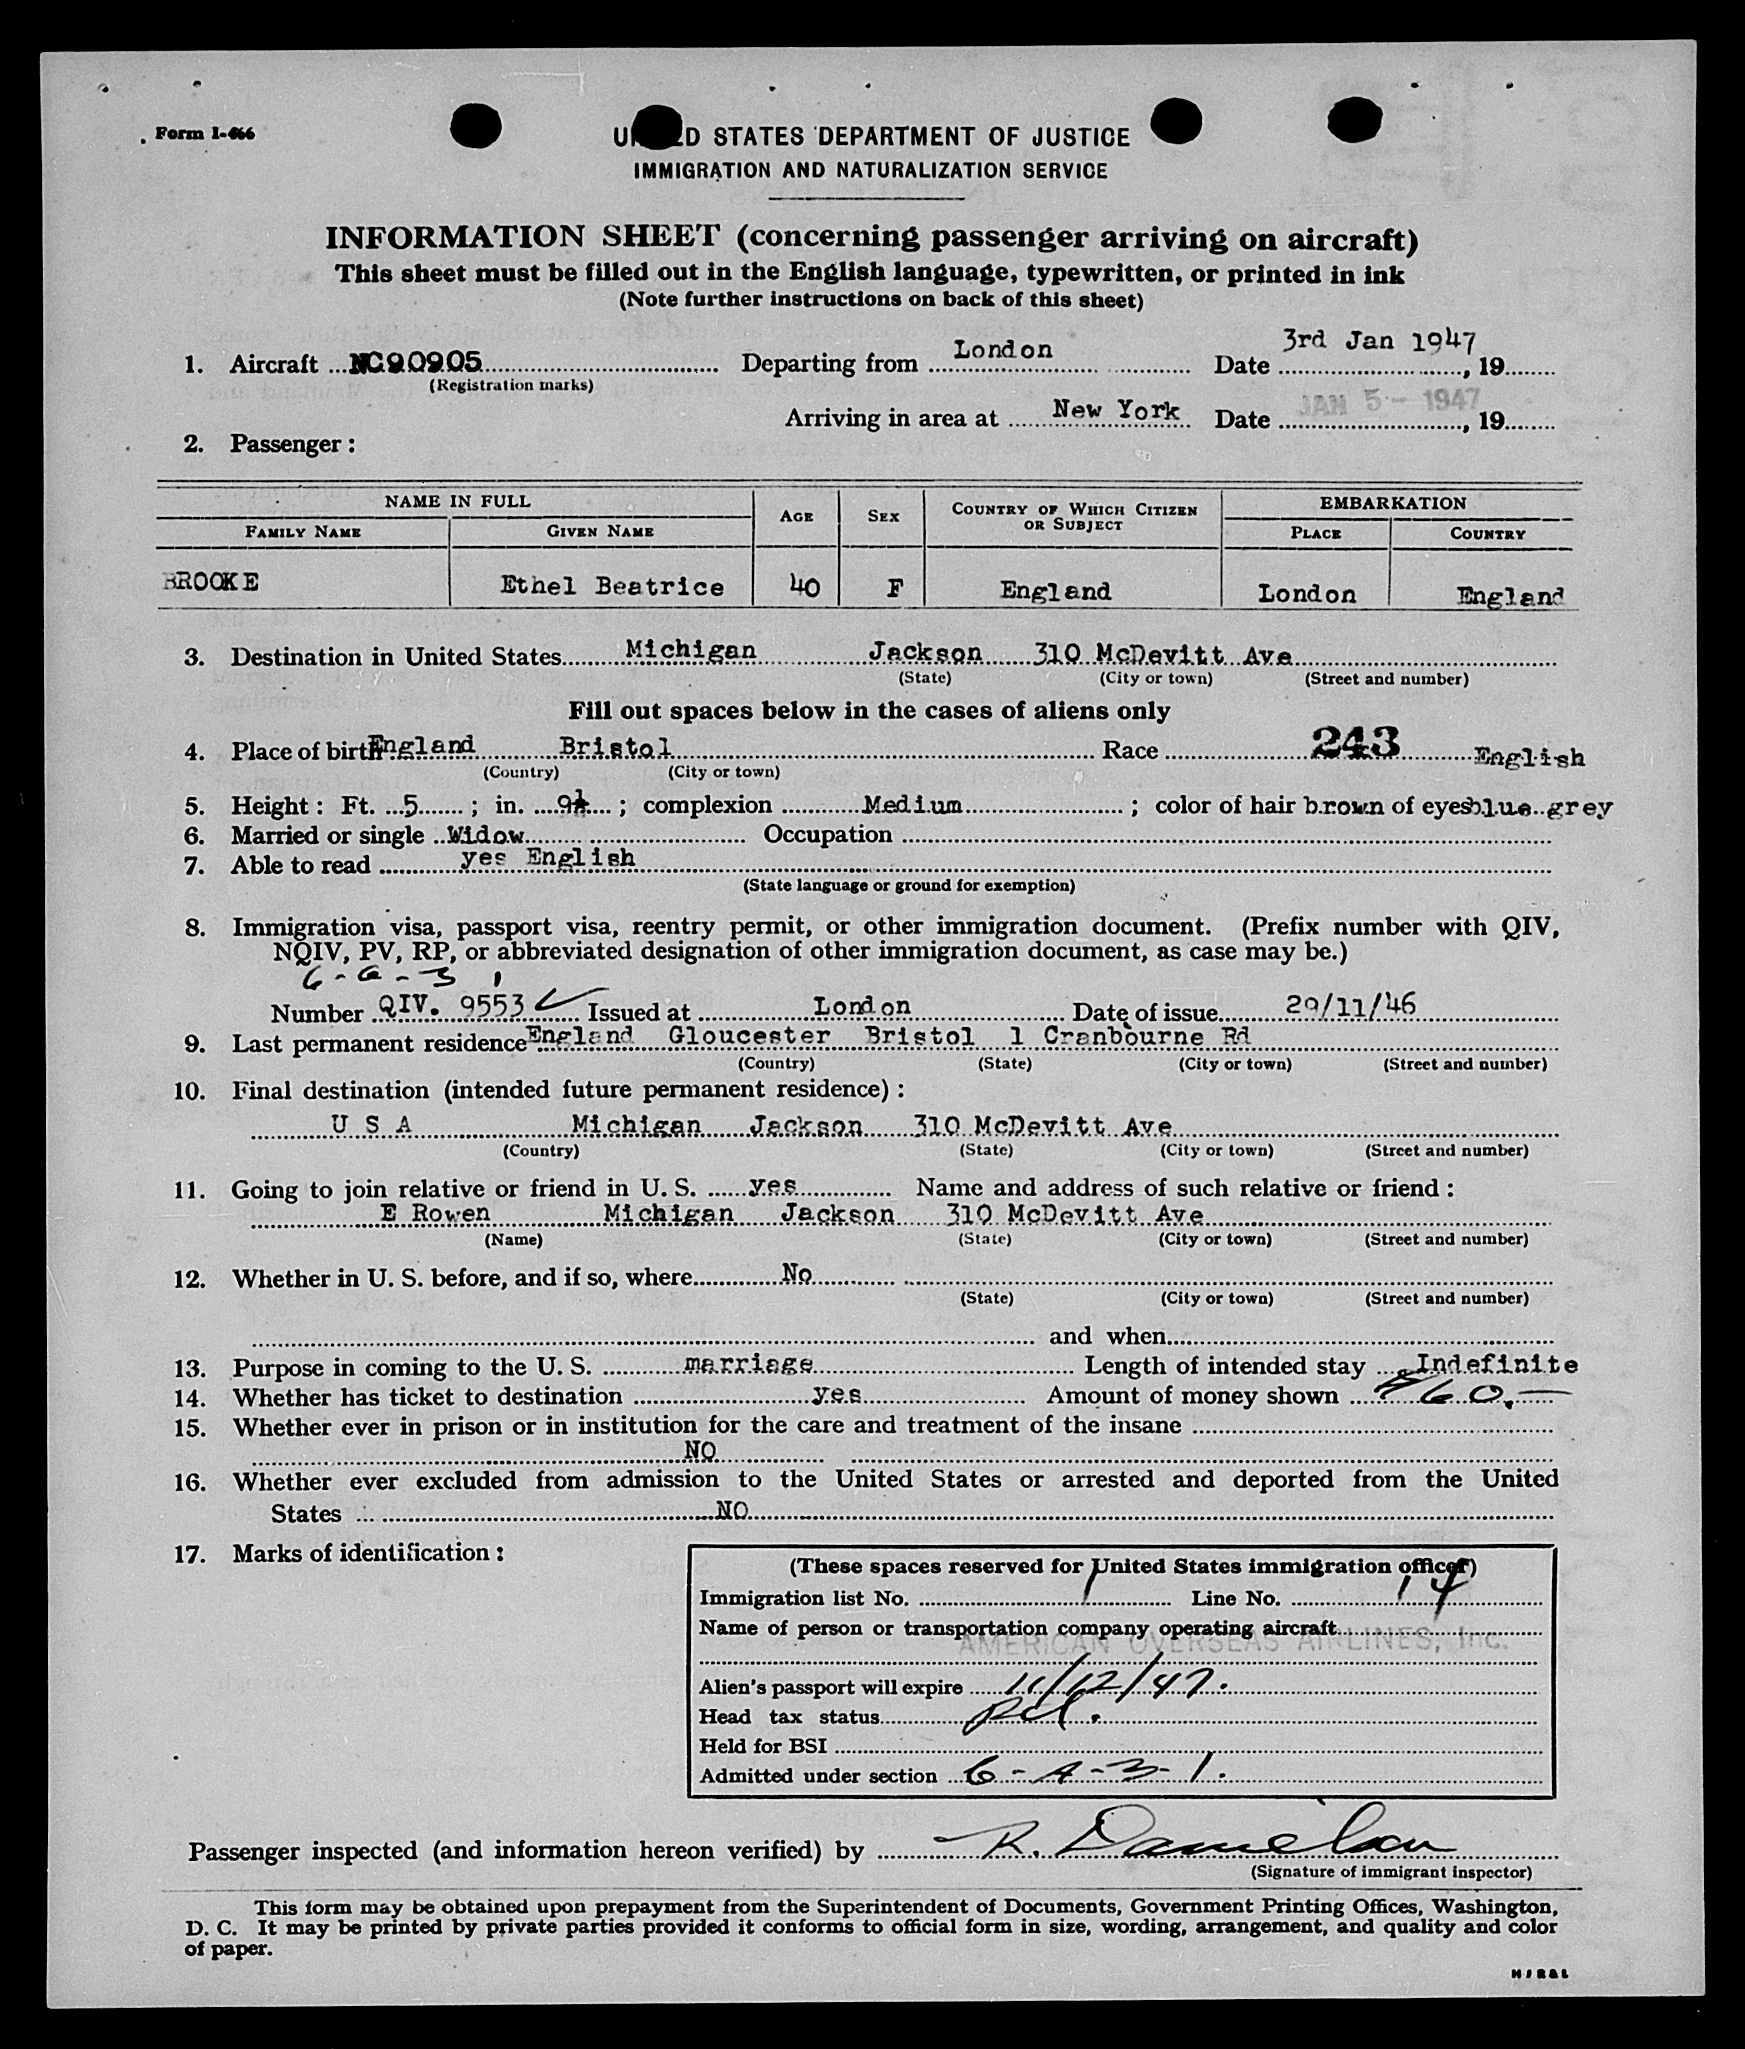 Form I-466
UNITED STATES DEPARTMENT OF JUSTICE
IMMIGRATION AND NATURALIZATION SERVICE
INFORMATION SHEET (concerning passenger arriving on aircraft)
This sheet must be filled out in the English language, typewritten, or printed in ink
(Note further instructions on back of this sheet)
1. Aircraft NC90905 Departing from London Date 3rd Jan 1947, 19
(Registration marks)
Arriving in area at New York Date JAN 5 - 1947, 19
2. Passenger:
NAME IN FULL AGE SEX COUNTRY OF WHICH CITIZEN OR SUBJECT EMBARKATION
FAMILY NAME GIVEN NAME PLACE COUNTRY
BROOKE Ethel Beatrice 40 F England London England
3. Destination in United States Michigan Jackson 310 McDevitt Ave
(State) (City or town) (Street and number)
Fill out spaces below in the cases of aliens only
4. Place of birth England Bristol Race 243 English
(Country) (City or town)
5. Height: Ft. 5; in. 9½; complexion Medium; color of hair brown of eyes blue grey
6. Married or single Widow Occupation
7. Able to read yes English
(State language or ground for exemption)
8. Immigration visa, passport visa, reentry permit, or other immigration document. (Prefix number with QIV,
NQIV, PV, RP, or abbreviated designation of other immigration document, as case may be.)
6-a-3 1
Number QIV. 9553 ✓ Issued at London Date of issue 29/11/46
9. Last permanent residence England Gloucester Bristol 1 Cranbourne Rd
(Country) (State) (City or town) (Street and number)
10. Final destination (intended future permanent residence):
U S A Michigan Jackson 310 McDevitt Ave
(Country) (State) (City or town) (Street and number)
11. Going to join relative or friend in U. S. yes Name and address of such relative or friend:
E Rowen Michigan Jackson 310 McDevitt Ave
(Name) (State) (City or town) (Street and number)
12. Whether in U. S. before, and if so, where No
(State) (City or town) (Street and number)
and when
13. Purpose in coming to the U. S. marriage Length of intended stay Indefinite
14. Whether has ticket to destination yes Amount of money shown $60.—
15. Whether ever in prison or in institution for the care and treatment of the insane
NO
16. Whether ever excluded from admission to the United States or arrested and deported from the United
States NO
17. Marks of identification:
(These spaces reserved for United States immigration officer)
Immigration list No. 1 Line No. 14
Name of person or transportation company operating aircraft
AMERICAN OVERSEAS AIRLINES, Inc.
Alien's passport will expire 11/12/47.
Head tax status Pd.
Held for BSI
Admitted under section 6-A-3-1.
Passenger inspected (and information hereon verified) by R. Danielson
(Signature of immigrant inspector)
This form may be obtained upon prepayment from the Superintendent of Documents, Government Printing Offices, Washington,
D. C. It may be printed by private parties provided it conforms to official form in size, wording, arrangement, and quality and color
of paper.